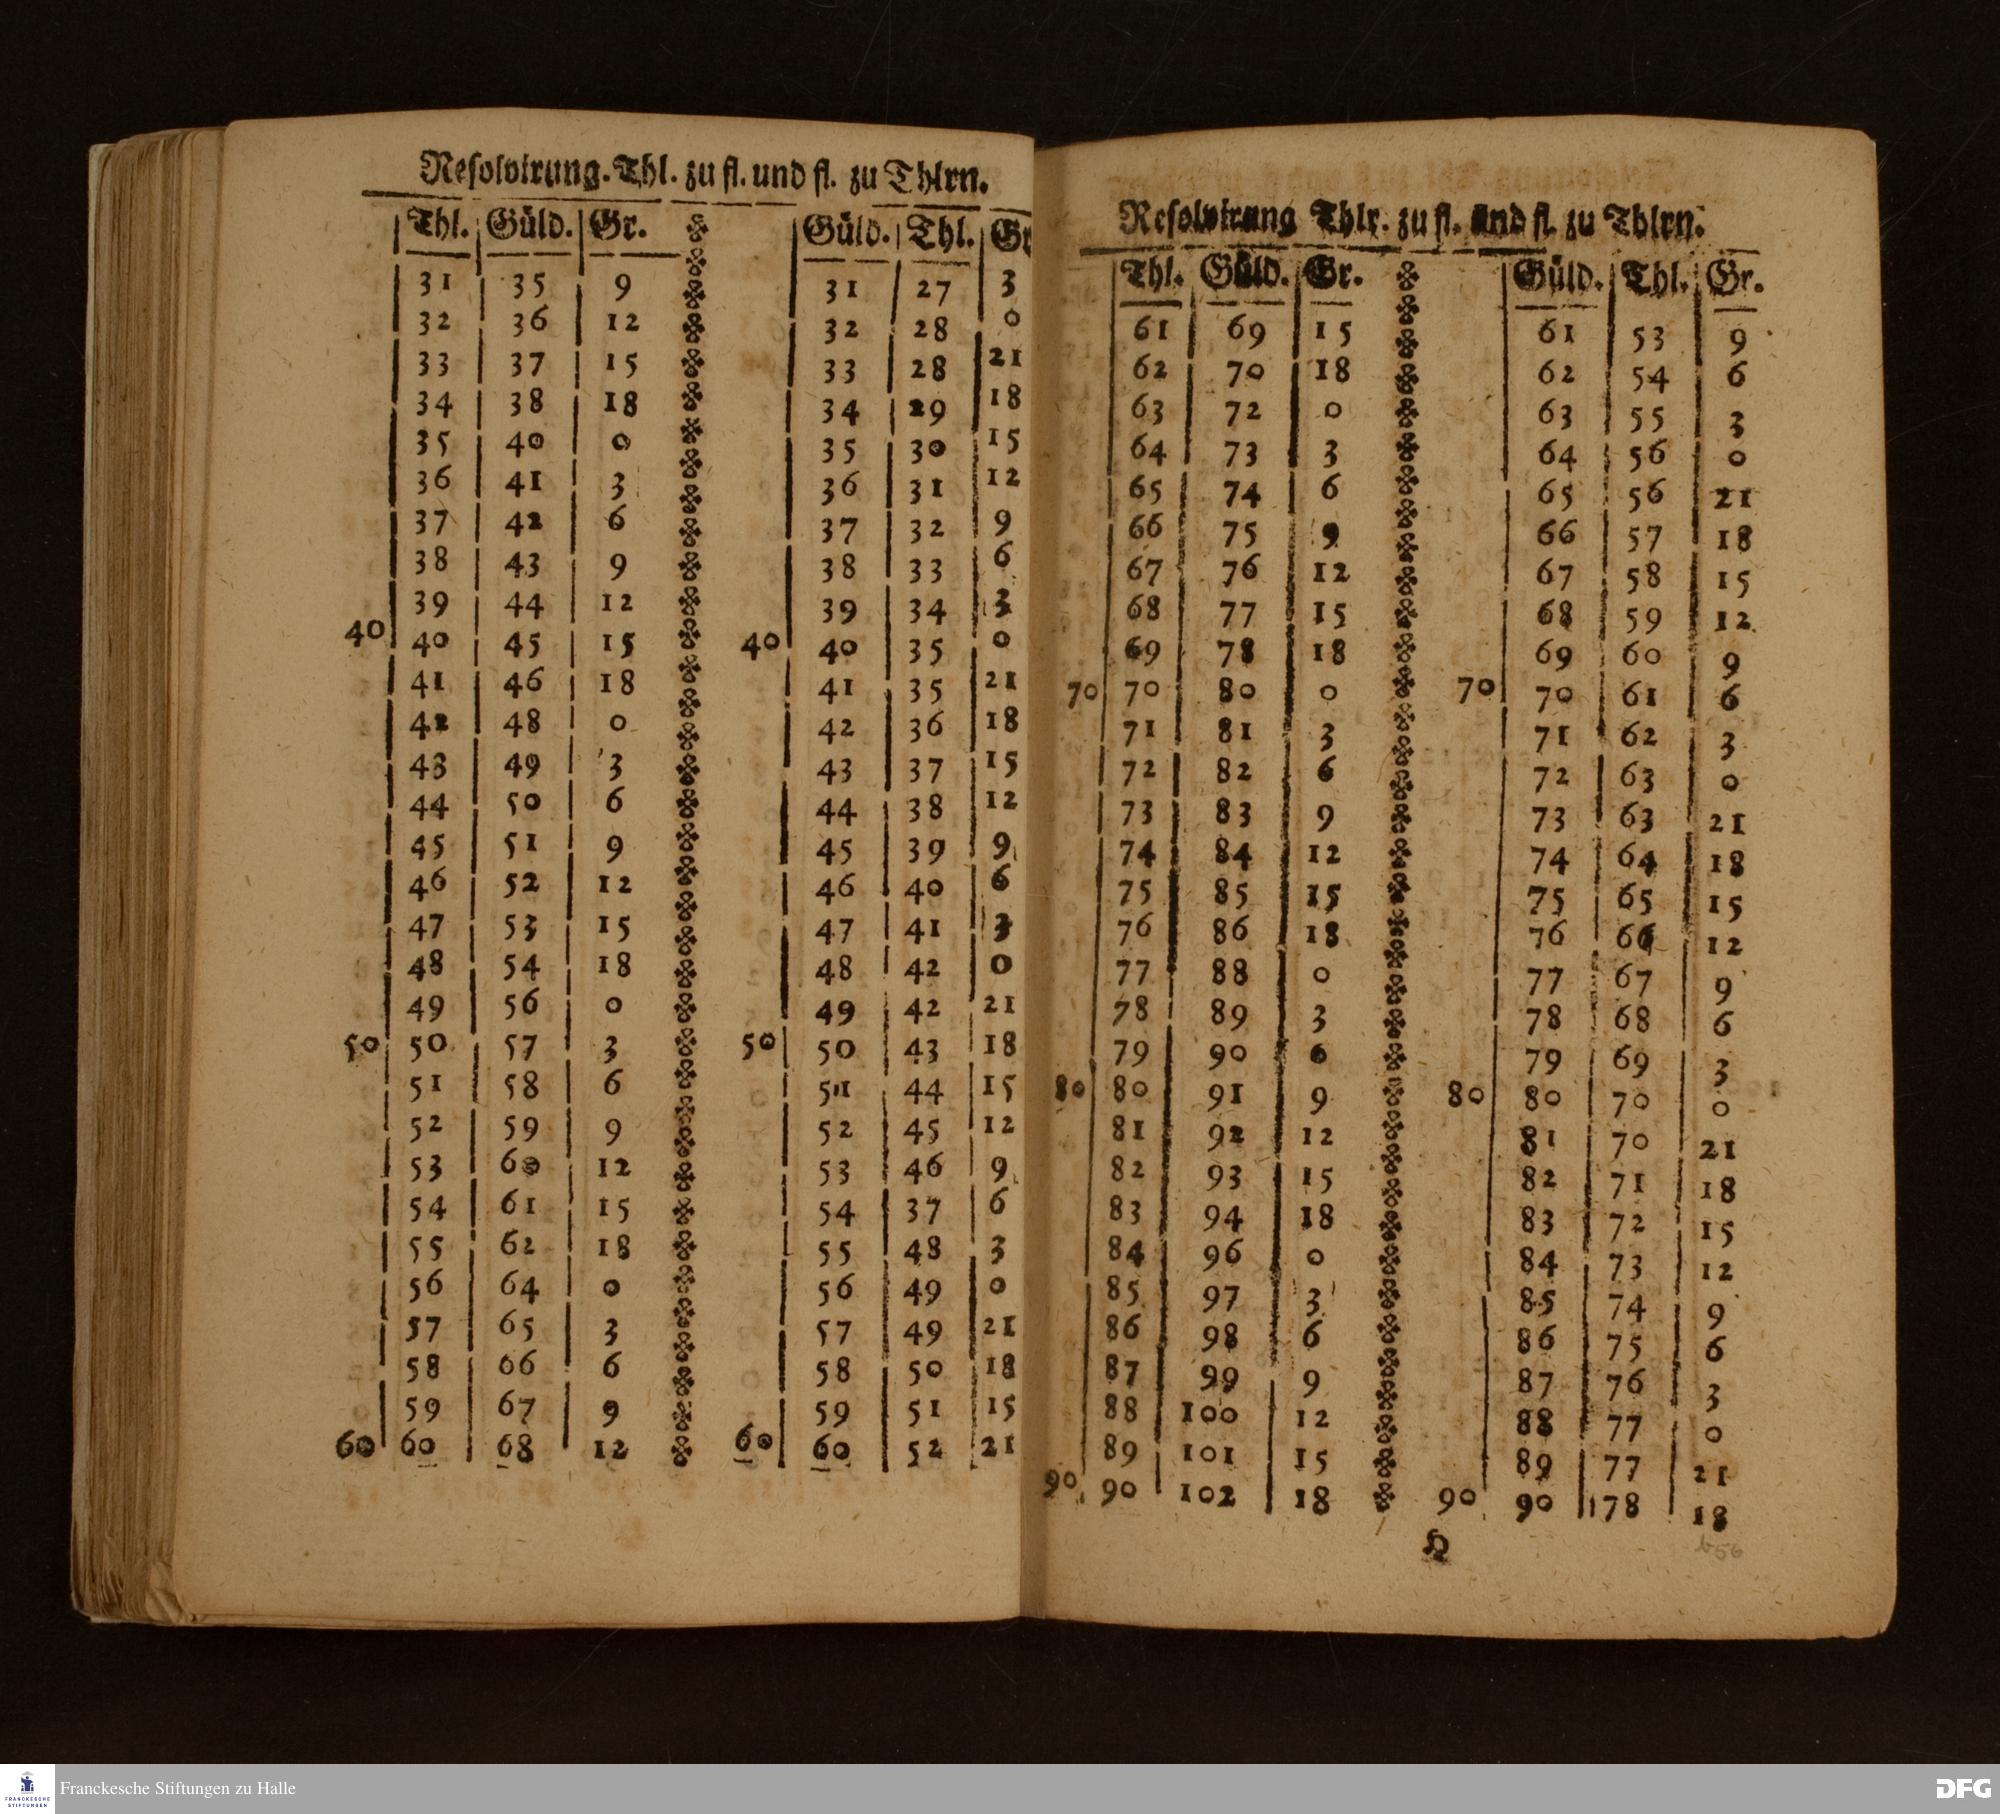 Resolvirung. Thl. zu fl. und fl. zu Thlrn.
Thl. Güld. Gr. Güld. Thl. Gr
31 35 9 31 27 3
32 36 12 32 28 0
33 37 15 33 28 21
34 38 18 34 29 18
35 40 0 35 30 15
36 41 3 36 31 12
37 42 6 37 32 9
38 43 9 38 33 6
39 44 12 39 34 3
40 40 45 15 40 40 35 0
41 46 18 41 35 21
42 48 0 42 36 18
43 49 3 43 37 15
44 50 6 44 38 12
45 51 9 45 39 9
46 52 12 46 40 6
47 53 15 47 41 3
48 54 18 48 42 0
49 56 0 49 42 21
50 50 57 3 50 50 43 18
51 58 6 51 44 15
52 59 9 52 45 12
53 60 12 53 46 9
54 61 15 54 37 6
55 62 18 55 48 3
56 64 0 56 49 0
57 65 3 57 49 21
58 66 6 58 50 18
59 67 9 59 51 15
60 60 68 12 60 60 52 21
Resolvirung Thlr. zu fl. und fl. zu Thlrn.
Thl. Güld. Gr. Güld. Thl. Gr.
61 69 15 61 53 9
62 70 18 62 54 6
63 72 0 63 55 3
64 73 3 64 56 0
65 74 6 65 56 21
66 75 9 66 57 18
67 76 12 67 58 15
68 77 15 68 59 12
69 78 18 69 60 9
70 70 80 0 70 70 61 6
71 81 3 71 62 3
72 82 6 72 63 0
73 83 9 73 63 21
74 84 12 74 64 18
75 85 15 75 65 15
76 86 18 76 66 12
77 88 0 77 67 9
78 89 3 78 68 6
79 90 6 79 69 3
80 80 91 9 80 80 70 0
81 92 12 81 70 21
82 93 15 82 71 18
83 94 18 83 72 15
84 96 0 84 73 12
85 97 3 85 74 9
86 98 6 86 75 6
87 99 9 87 76 3
88 100 12 88 77 0
89 101 15 89 77 21
90 90 102 18 90 90 78 18
Franckesche Stiftungen zu Halle
FRANCKESCHE
STIFTUNGEN
DFG